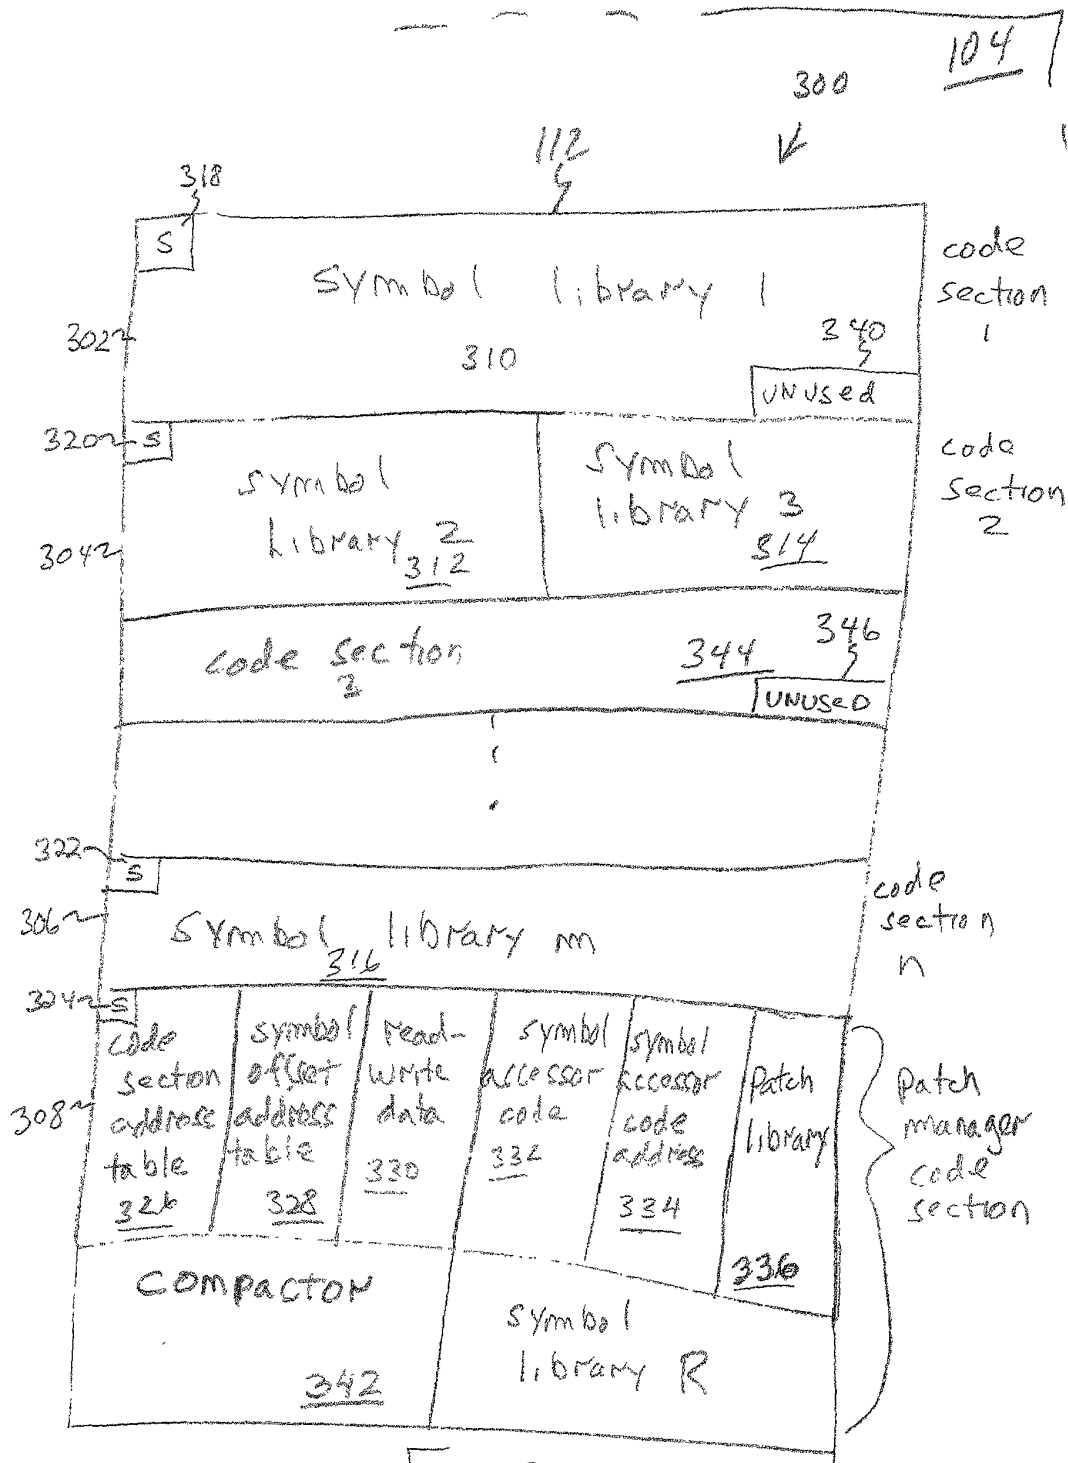 104
300
112
318
S
symbol library 1
code
section
1
302
310
340
UNUSed
320
S
symbol
library 2
312
symbol
library 3
314
code
section
2
304
code section
3
344
346
UNUSED
322
S
306
symbol library m
316
code
section
n
324
S
code
section
address
table
326
symbol
offset
address
table
328
read-
write
data
330
symbol
accessor
code
332
symbol
accessor
code
address
334
Patch
library
336
308
Patch
manager
code
section
COMPACTOR
342
symbol
library R